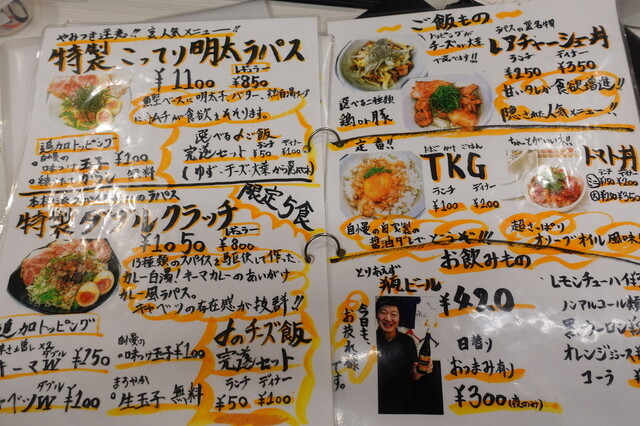 やみつき注意!! 裏人気メニュー!!
特製 こってり明太ラパス
¥1100 レギュラー ¥850
追加トッピング
味つけ玉子 ¥100
無料
選べる〆ご飯
完落セット
ランチ ¥50 ディナー ¥100
(ゆず、チーズ、大葉から選べる)
限定5食
特製 ダブルクラッチ
¥1050 ¥800
13種類のスパイスを駆使して作った、
カレー白湯!キーマカレーのあいがけ
カレー風ラパス。
キャベツの存在感が抜群!!
追加トッピング
キーマW ダブル ¥250
自慢の味つけ玉子 ¥100
キャベツW ダブル ¥100
まろやか 生玉子 無料
〆のチーズ飯
完落セット
ランチ ¥50 ディナー ¥100
ご飯もの
トッピングが
チーズor大葉
で選べます!!
選べる二種類
鶏or豚
レアチャーシュー丼
ランチ ¥250 ディナー ¥350
甘いタレが食欲増進!!
隠された人気メニュー!!
定番!!
たまご かけ ごはん
TKG
ランチ ¥100 ディナー ¥200
自慢の自家製の
醤油ダレでどうぞ!!
ちょこっといい!!
トマト丼
超さっぱり
オリーブオイル風味
お飲みもの
とりあえず
瓶ビール
¥420
今日も、お疲れ様です。
日替り
おつまみ有り
¥300(夜のみ)
レモンチューハイ
ノンアルコール
黒ウーロン
オレンジジュース
コーラ